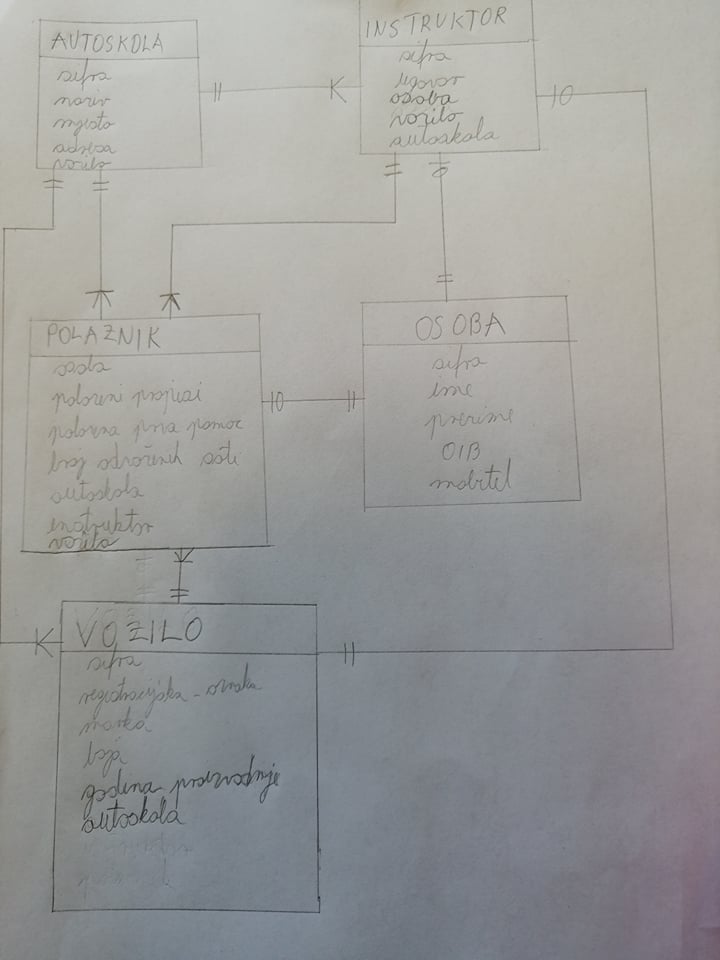 AUTOSKOLA
sifra
naziv
mjesto
adresa
vozilo
INSTRUKTOR
sifra
ugovor
osoba
vozilo
autoskola
POLAZNIK
osoba
polozeni propisi
polozena prva pomoc
broj odvoženih sati
autoskola
instruktor
vozilo
OSOBA
sifra
ime
prezime
OIB
mobitel
VOZILO
sifra
registracijska_oznaka
marka
boja
godina proizvodnje
autoskola